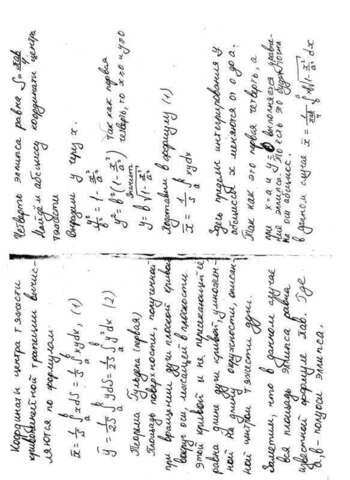 Координаты центра тяжести
криволинейной трапеции вычис-
ляются по формулам
x̄ = 1/S ∫ x dS = 1/S ∫ₐᵇ xy dx, (1)
ȳ = 1/2S ∫ y dS = 1/2S ∫ₐᵇ y² dx (2)
Теорема Гульдена (первая)
Площадь поверхности, полученной
при вращении дуги плоской кривой
вокруг оси, лежащей в плоскости
этой кривой и не пересекающей её
равна длине дуги кривой, умножен-
ной на длину окружности, описан-
ной центром тяжести дуги.
Заметим, что в данном случае
вся площадь эллипса равна
известной формуле πab. Где
a, b - полуоси эллипса.
Четверть эллипса равна S = πab
Найдем абсциссу координаты центра
тяжести
Выразим y через x.
y²/b² = 1 - x²/a²
y² = b²(1 - x²/a²) Так как первая
четверть, то x≥0 и y≥0
Значит
y = b√(1 - x²/a²)
Подставим в формулу (1)
x̄ = 1/S ∫ xy dx
Здесь пределы интегрирования у
абсциссы x меняются от 0 до a.
Так как это первая четверть, а
при x=a и y=0 выполняется уравне-
ний эллипса то есть это будет точка
на оси абсцисс.
В данном случае x̄ = 1/πab ∫ x b√(1 - x²/a²) dx